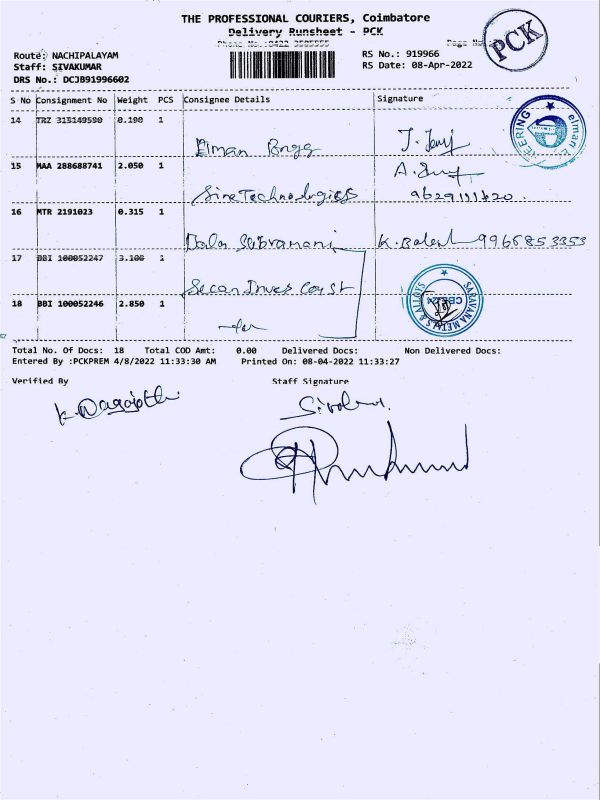 THE PROFESSIONAL COURIERS, Coimbatore
Delivery Runsheet - PCK
PCK
Route: NACHIPALAYAM
RS No.: 919966
Staff: SIVAKUMAR
RS Date: 08-Apr-2022
DRS No.: DCJB91996602
S No Consignment No Weight PCS Consignee Details Signature
14 TRZ 0.190 1
Elman Engg
15 MAA 288688741 2.050 1
Sine Technologies 9629111620
16 MTR 2191023 0.315 1
Bala Subramani K. Balasu 9966853353
17 BBI 100052247 3.100 1
18 BBI 100052246 2.850 1
SARAVANA METALS & ALLOYS
Total No. Of Docs: 18 Total COD Amt: 0.00 Delivered Docs: Non Delivered Docs:
Entered By :PCKPREM 4/8/2022 11:33:30 AM Printed On: 08-04-2022 11:33:27
Verified By Staff Signature